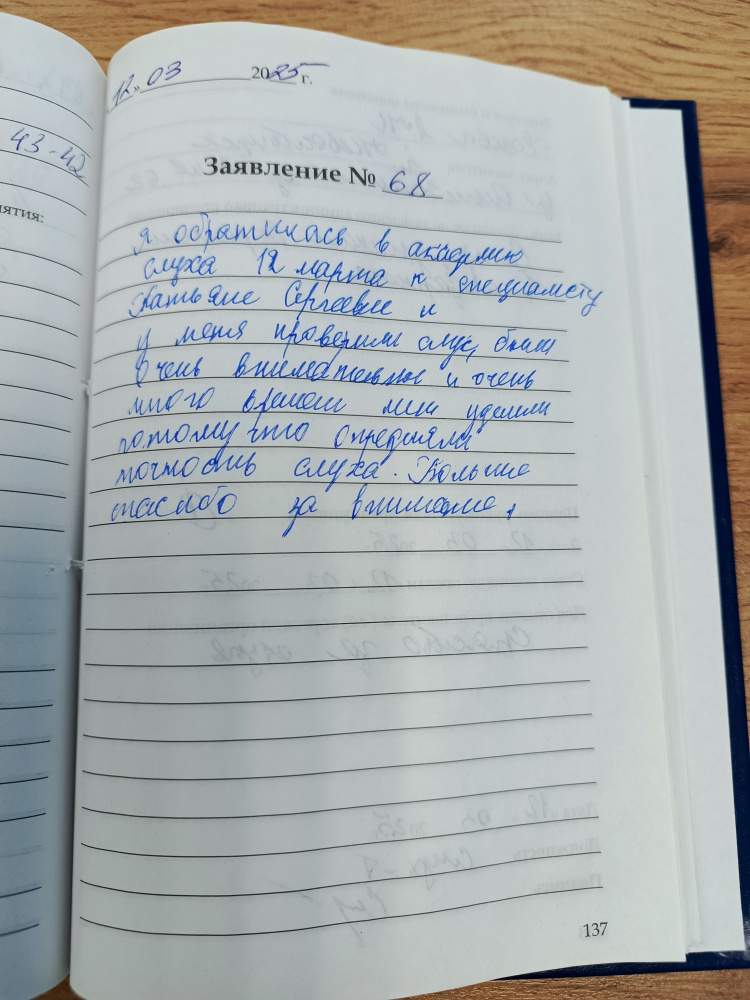 43-42
ятия:
12.03 2025 г.
Заявление № 68
Я обратилась в академию
слуха 12 марта к специалисту
Татьяне Сергеевне и
у меня проверили слух, были
очень внимательны и очень
много времени мне уделили
потому что определяли
точность слуха. Большое
спасибо за внимание.
137